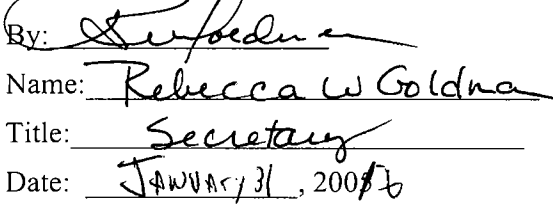 By:
Name: Rebecca W Goldman
Title: Secretary
Date: January 31, 2006